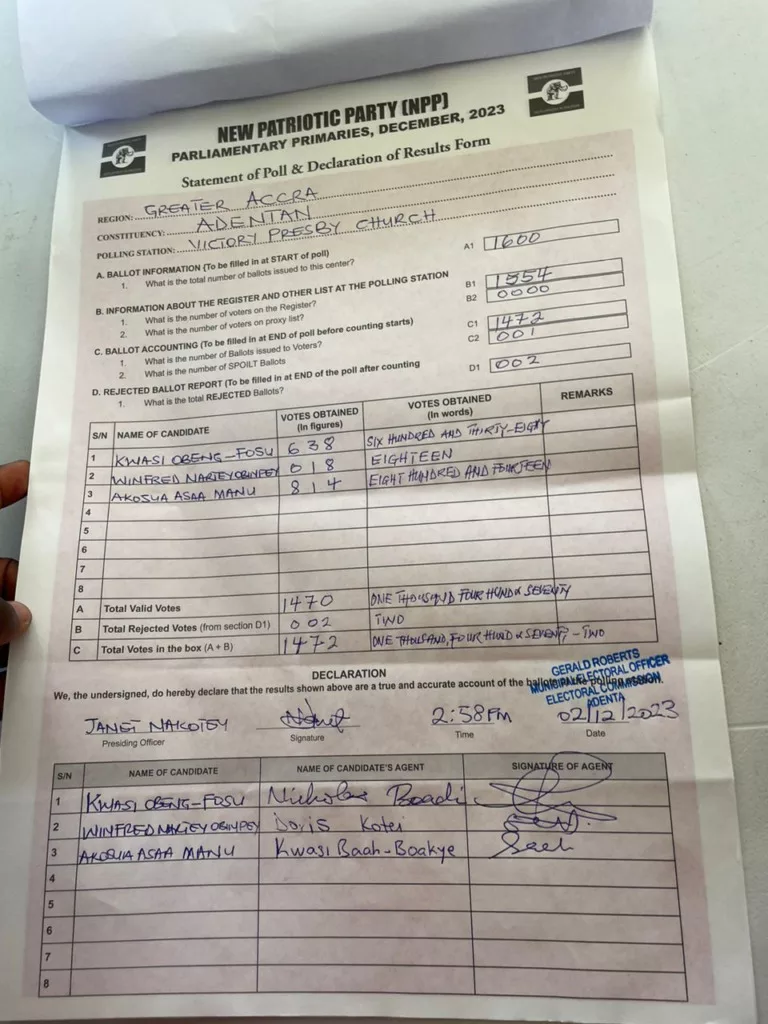 NEW PATRIOTIC PARTY (NPP)
PARLIAMENTARY PRIMARIES, DECEMBER, 2023
Statement of Poll & Declaration of Results Form
REGION: GREATER ACCRA
CONSTITUENCY: ADENTAN
POLLING STATION: VICTORY PRESBY CHURCH
A. BALLOT INFORMATION (To be filled in at START of poll)
1. What is the total number of ballots issued to this center? A1 1600
B. INFORMATION ABOUT THE REGISTER AND OTHER LIST AT THE POLLING STATION
1. What is the number of voters on the Register? B1 1554
2. What is the number of voters on proxy list? B2 0000
C. BALLOT ACCOUNTING (To be filled in at END of poll before counting starts)
1. What is the number of Ballots issued to Voters? C1 1472
2. What is the number of SPOILT Ballots C2 001
D. REJECTED BALLOT REPORT (To be filled in at END of the poll after counting
1. What is the total REJECTED Ballots? D1 002
S/N NAME OF CANDIDATE VOTES OBTAINED (In figures) VOTES OBTAINED (In words) REMARKS
1 KWASI OBENG-FOSU 638 SIX HUNDRED AND THIRTY-EIGHT
2 WINFRED NARTEY OBIMPEY 018 EIGHTEEN
3 AKOSUA ASAA MANU 814 EIGHT HUNDRED AND FOURTEEN
4
5
6
7
8
A Total Valid Votes 1470 ONE THOUSAND FOUR HUND & SEVENTY
B Total Rejected Votes (from section D1) 002 TWO
C Total Votes in the box (A + B) 1472 ONE THOUSAND, FOUR HUND & SEVENTY-TWO
DECLARATION
We, the undersigned, do hereby declare that the results shown above are a true and accurate account of the ballot polling station.
GERALD ROBERTS
MUNICIPAL ELECTORAL OFFICER
ELECTORAL COMMISSION
ADENTA
JANET NAKOTEY 2:58PM 02/12/2023
Presiding Officer Signature Time Date
S/N NAME OF CANDIDATE NAME OF CANDIDATE'S AGENT SIGNATURE OF AGENT
1 KWASI OBENG-FOSU Nicholas Boadi
2 WINFRED NARTEY OBIMPEY Doris Kotei
3 AKOSUA ASAA MANU Kwasi Baah-Boakye
4
5
6
7
8